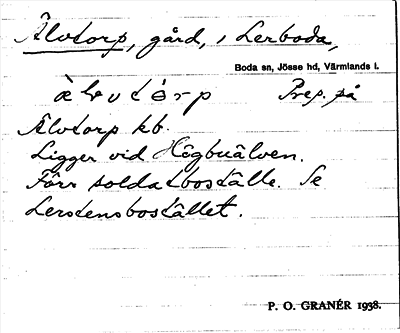 Älvtorp, gård, i Lerboda,
Boda sn, Jösse hd, Värmlands l.
ä̀lvtórp Prep. på
Älvtorp kb.
Ligger vid Högbuälven.
Förr soldatboställe. Se
Lerstensbostället.
P. O. GRANÉR 1938.